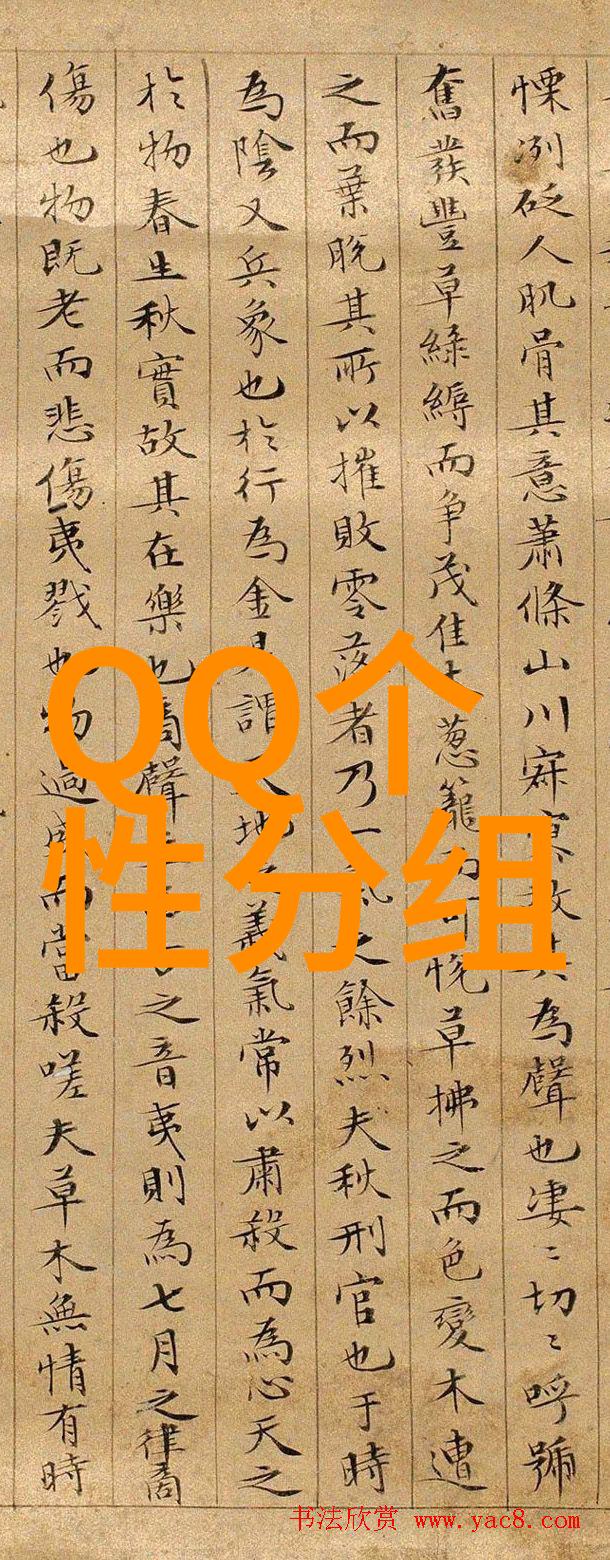 慄冽砭人肌骨其意蕭條山川寂寥故其為聲也凄〻切〻呼號
奮發豐草綠縟而争茂佳木葱籠而可悅草拂之而色變木遭
之而葉脫其所以摧敗零落者乃一氣之餘烈夫秋刑官也于時
為陰又兵象也於行為金是謂地義氣常以肅殺而為心天之
於物春生秋實故其在樂也商聲之音夷則為七月之律商
傷也物既老而悲傷夷戮也物過盛而當殺嗟夫草木無情有時
QQ个
性分组
书法欣赏 www.yac8.com